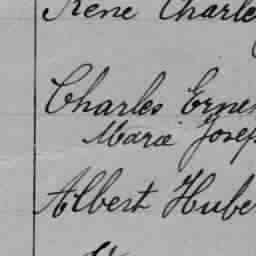 René Charle
Charles Erne
Marie Josep
Albert Hube